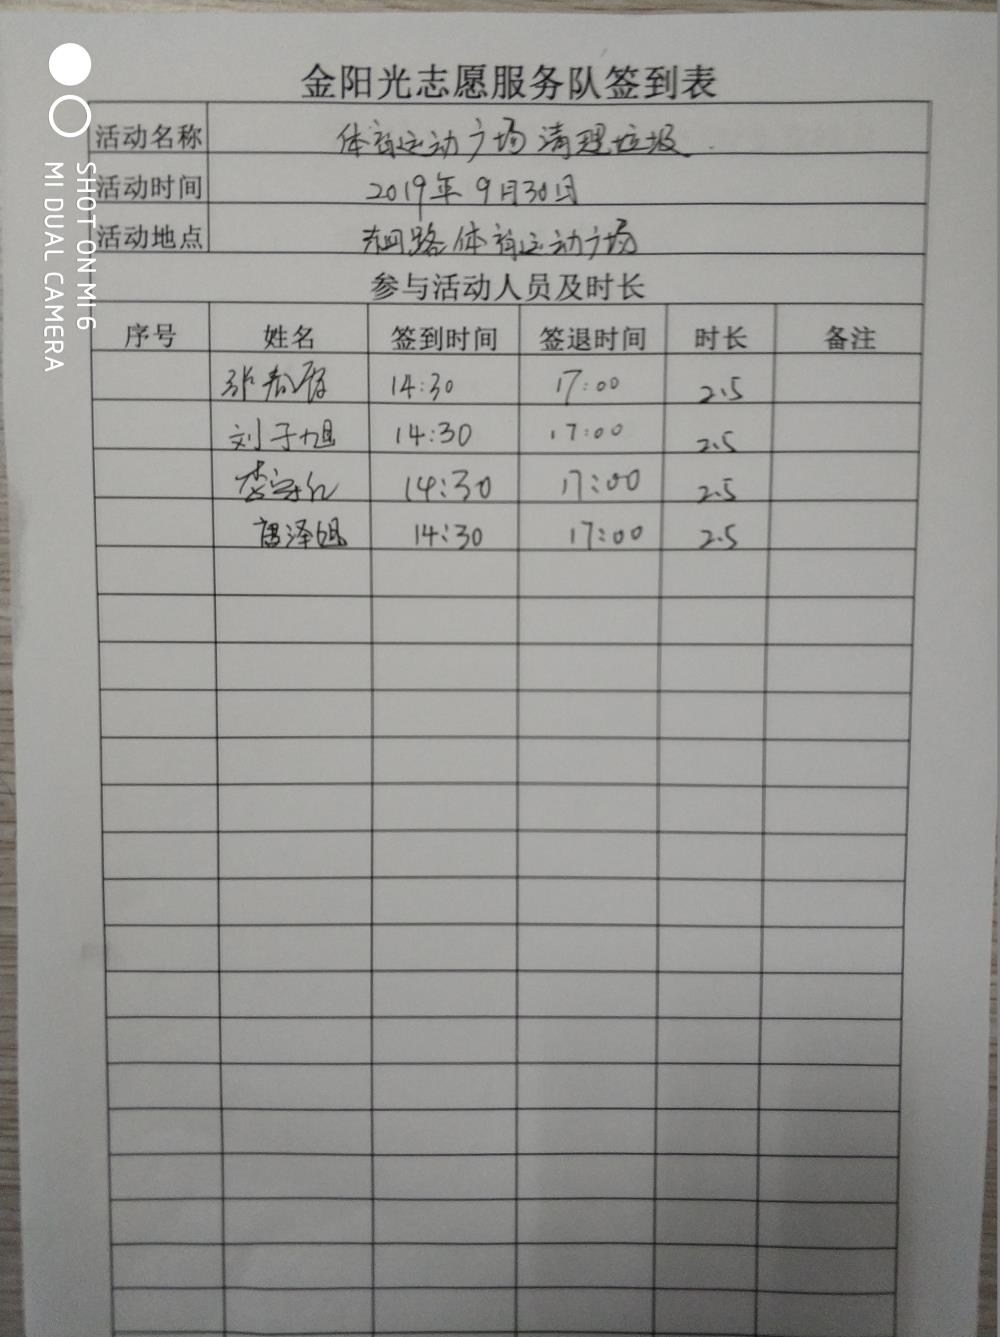 金阳光志愿服务队签到表
活动名称 体育运动广场 清理垃圾
活动时间 2019年 9月30日
活动地点 路体育运动广场
参与活动人员及时长
序号 姓名 签到时间 签退时间 时长 备注
张 14:30 17:00 2.5
刘子旭 14:30 17:00 2.5
李 14:30 17:00 2.5
泽旭 14:30 17:00 2.5
SHOT ON MI 6
MI DUAL CAMERA